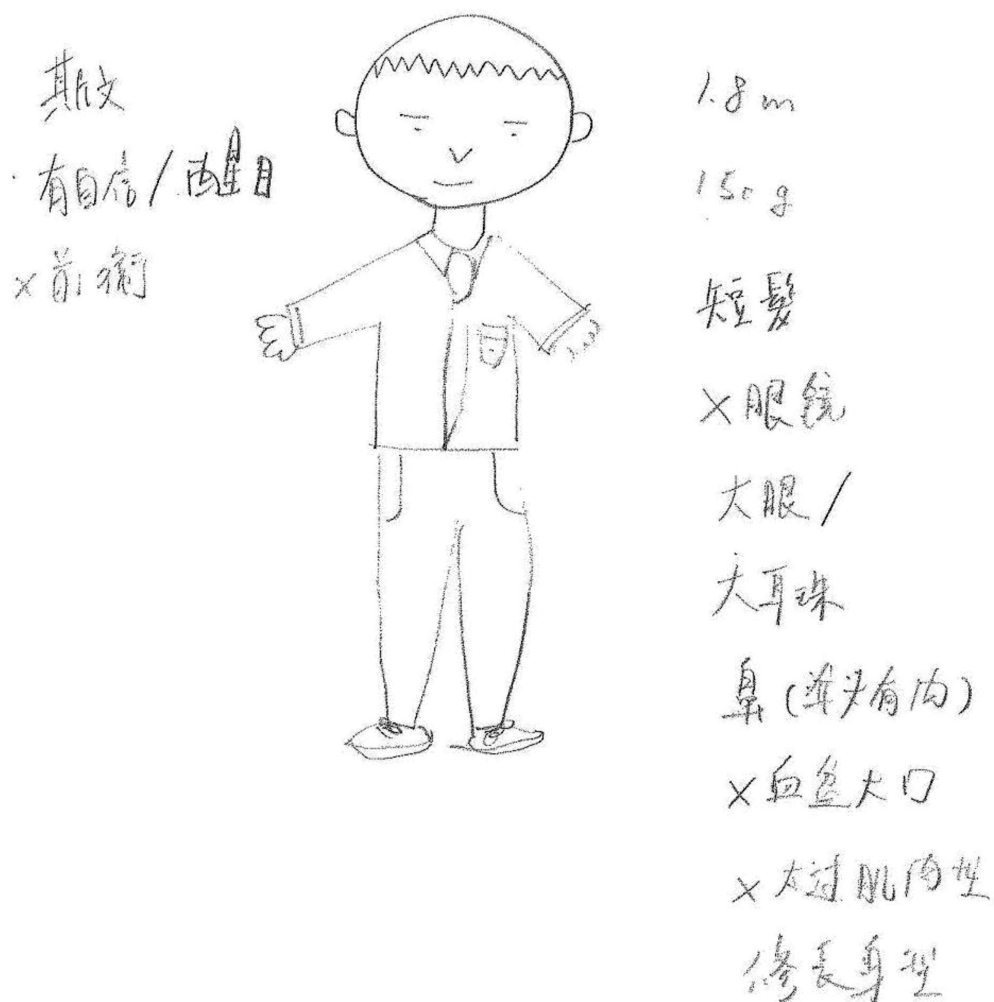 斯文
有自信/醒目
x前衛
1.8m
150g
短髮
x眼鏡
大眼/
大耳珠
鼻(準头有肉)
x血盆大口
x太过肌肉型
修長身型